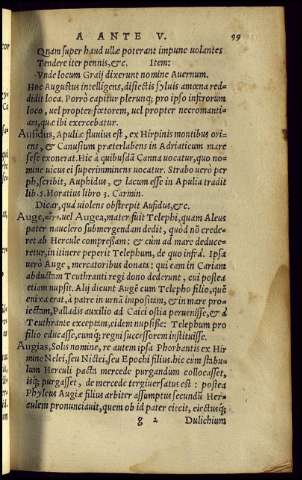 A ANTE V. 99
Quam super haud ullæ poterant impune uolantes
Tendere iter pennis, &c. Item:
Vnde locum Graij dixerunt nomine Auernum.
Hoc Augustus intelligens, disiectis syluis amœna red-
didit loca. Porrò capitur plerunq; pro ipso inferorum
loco, uel propter fœtorem, uel propter necromanti-
an, quæ ibi exercebatur.
Aufidus, Apuliæ fluuius est, ex Hirpinis montibus ori-
ens, & Canusium præterlabens in Adriaticum mare
sese exonerat. Hic à quibusdã Canna uocatur, quo no-
mine uicus ei superimminens uocatur. Strabo uerò per
ph, scribit, Auphidus, & lacum esse in Apulia tradit
lib. 5. Horatius libro 3. Carmin.
Dicar, quà uiolens obstrepit Aufidus, &c.
Auge, uel Augea, mater fuit Telephi, quam Aleus
pater nauclero submergendam dedit, quòd nõ crede-
ret ab Hercule compressam: & cùm ad mare deduce-
retur, in itinere peperit Telephum, de quo infrà. Ipsa
uerò Auge, mercatoribus donata: qui eam in Cariam
abductam Teuthranti regi dono dederunt, cui postea
etiam nupsit. Alij dicunt Augẽ cum Telepho filio, quẽ
enixa erat, à patre in urnã impositam, & in mare pro-
iectam, Palladis auxilio ad Caici ostia peruenisse, & à
Teuthrante exceptam, eidem nupsisse: Telephum pro
filio educasse, cumq; regni successorem instituisse.
Augias, Solis nomine, re autem ipsa Phorbantis ex Hir
mine Nelei, seu Nictei, seu Epochi filius. hic cùm stabu-
lum Herculi pacta mercede purgandum collocasset,
isq; purgasset, de mercede tergiuersatus est: postea
Phyleus Augiæ filius arbiter assumptus secundũ Her-
culem pronunciauit, quem ob id pater eiecit, eiectusq;
g 2 Dulichium